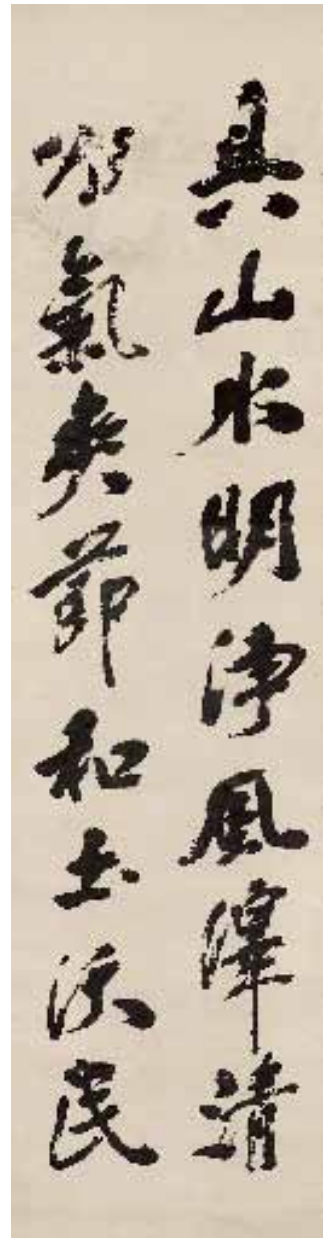 具山水明淨風澤清
氣爽節和土沃民